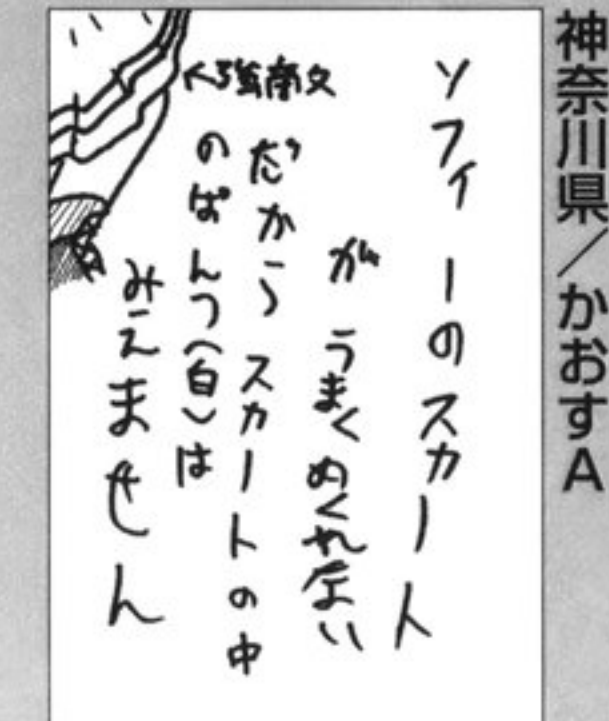 神奈川県／かおすA
ソフィーのスカート
がうまくめくれない
だからスカートの中
のぱんつ(白)は
みえません